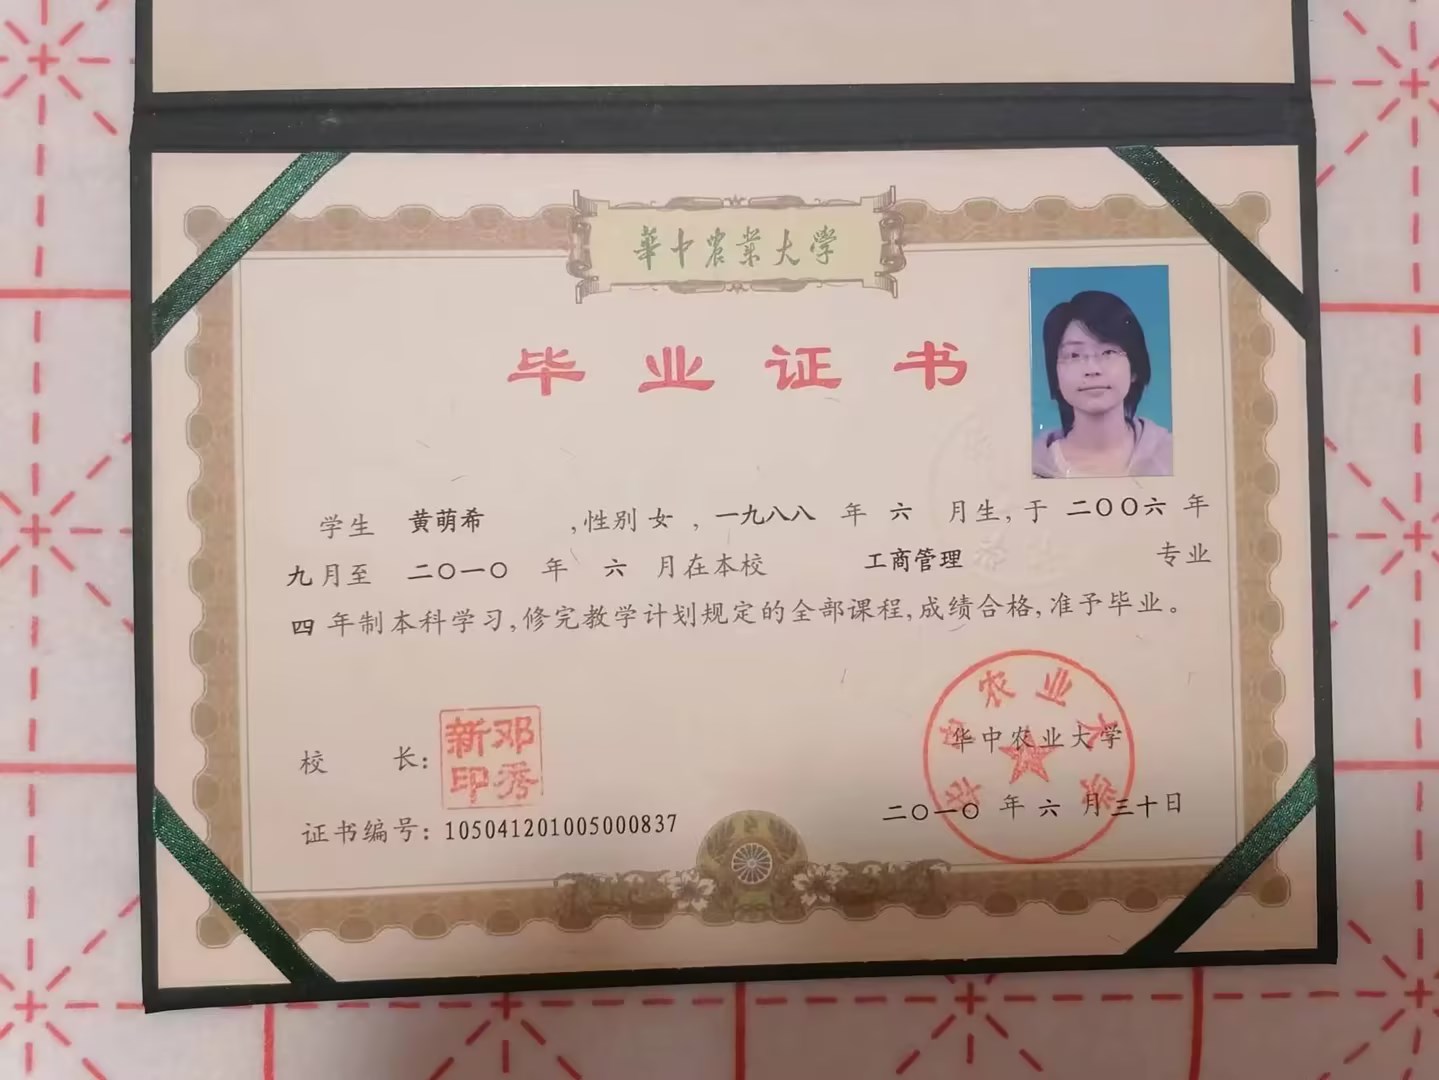 華中農業大学
毕业证书
学生 黄萌希 ,性别 女 , 一九八八 年 六 月生, 于 二〇〇六 年
九 月至 二〇一〇 年 六 月在本校 工商管理 专业
四 年制本科学习,修完教学计划规定的全部课程,成绩合格,准予毕业。
校 长:
新邓
印秀
证书编号: 105041201005000837
华中农业大学
华中农业大学
二〇一〇 年 六 月三十日